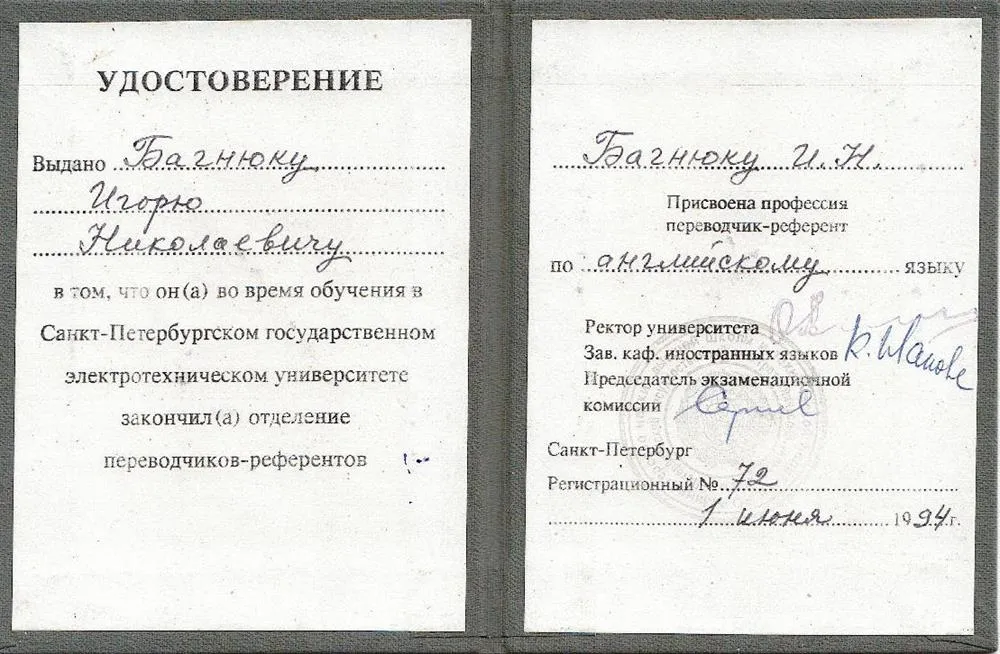 УДОСТОВЕРЕНИЕ
Выдано Багнюку
Игорю
Николаевичу
в том, что он(а) во время обучения в
Санкт-Петербургском государственном
электротехническом университете
закончил(а) отделение
переводчиков-референтов
Багнюку И. Н.
Присвоена профессия
переводчик-референт
по английскому языку
Ректор университета
Зав. каф. иностранных языков
Председатель экзаменационной
комиссии
Санкт-Петербург
Регистрационный № 72
1 июня 1994г.